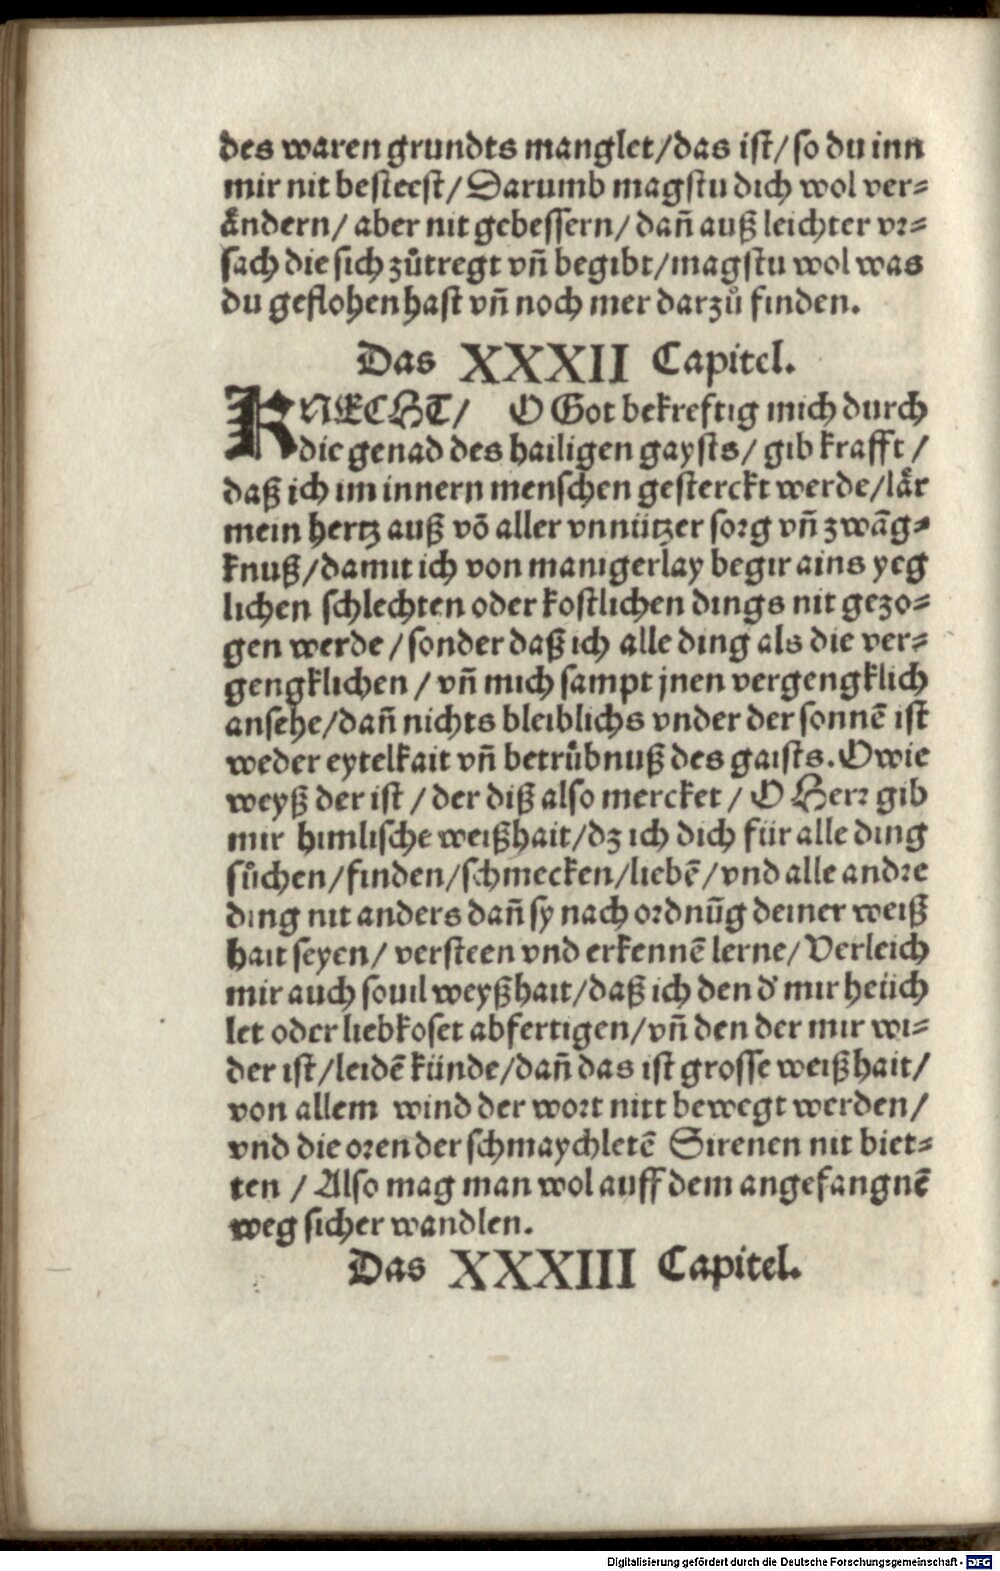 des waren grundts manglet/das ist/ so du inn
mir nit besteest/ Darumb magstu dich wol ver⸗
aͤndern/ aber nit gebessern/ dañ auß leichter vr⸗
sach die sich zůtregt vñ begibt/magstu wol was
du geflohen hast vñ noch mer darzů finden.
Das XXXII Capitel.
KNECHT/ O Got bekreftig mich durch
die genad des hailigen gaysts/ gib krafft /
daß ich im innern menschen gesterckt werde/laͤr
mein hertz auß võ aller vnnützer sorg vñ zwãg⸗
knuß/damit ich von manigerlay begir ains yeg
lichen schlechten oder kostlichen dings nit gezo⸗
gen werde / sonder daß ich alle ding als die ver⸗
gengklichen / vñ mich sampt jnen vergengklich
ansehe/dañ nichts bleiblichs vnder der sonnẽ ist
weder eytelkait vñ betruͤbnuß des gaists. O wie
weyß der ist / der diß also mercket / O Herr gib
mir himlische weißhait/dz ich dich für alle ding
sůchen/finden/schmecken/liebẽ/vnd alle andre
ding nit anders dañ sy nach ordnũg deiner weiß
hait seyen/ versteen vnd erkennẽ lerne/ Verleich
mir auch souil weyßhait/daß ich den d' mir heüch
let oder liebkoset abfertigen/vñ den der mir wi⸗
der ist/leidẽ künde/dañ das ist grosse weißhait/
von allem wind der wort nitt bewegt werden/
vnd die oren der schmaychletẽ Sirenen nit biet⸗
ten / Also mag man wol auff dem angefangnẽ
weg sicher wandlen.
Das XXXIII Capitel.
Digitalisierung gefördert durch die Deutsche Forschungsgemeinschaft - DFG